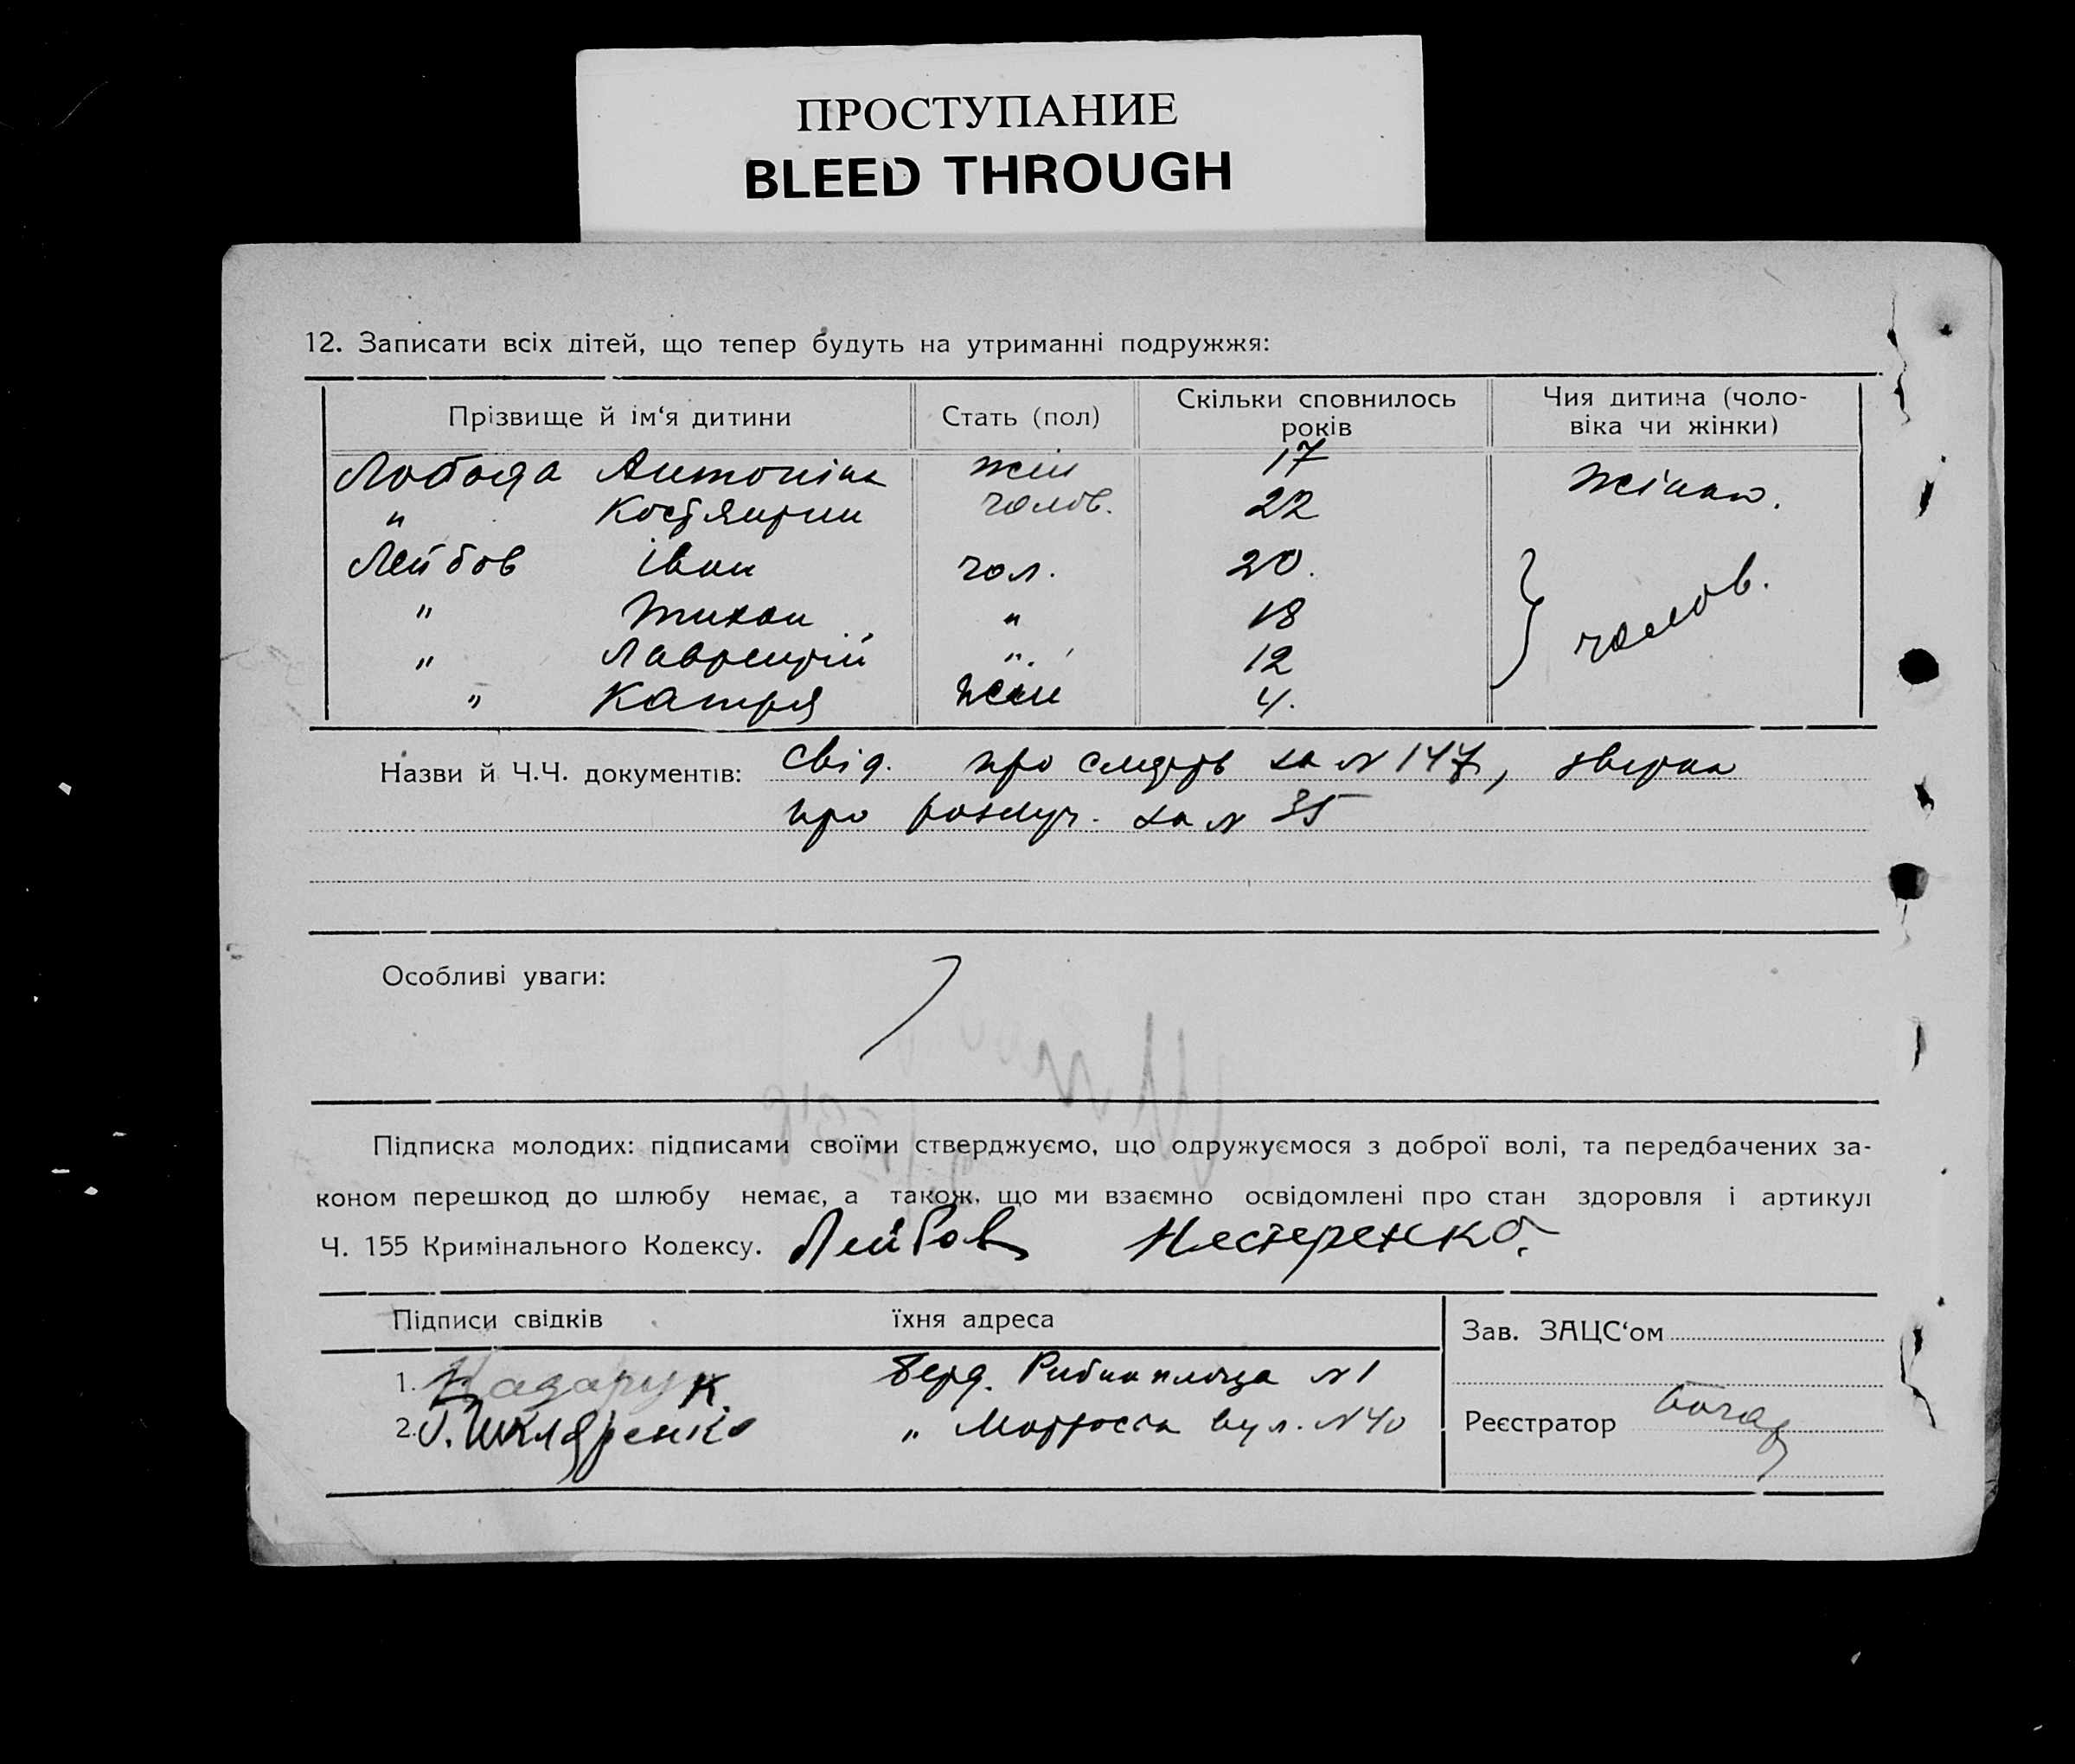 ПРОСТУПАНИЕ
BLEED THROUGH
12. Записати всіх дітей, що тепер будуть на утриманні подружжя:
Прізвище й ім‘я дитини Стать (пол) Скільки сповнилось років Чия дитина (чоловіка чи жінки)
Лобода Антоніна жін 17 жінки.
" Костянтин чолов. 22
Лейбов Іван чол. 20. чолов.
" Тихон " 18
" Лаврентій " 12
" Катря жін 4.
Назви й Ч.Ч. документів: Свід. про смерть за № 147,
про розлуч. за № 35
Особливі уваги:
Підписка молодих: підписами своїми стверджуємо, що одружуємося з доброї волі, та передбачених за-
коном перешкод до шлюбу немає, а також, що ми взаємно освідомлені про стан здоровля і артикул
Ч. 155 Кримінального Кодексу. Лейбов Нестеренко.
Підписи свідків їхня адреса Зав. ЗАЦС‘ом
1. Назарук Берд. Рибна площа № 1
2. Г. Шкляренко " вул. № 40 Реєстратор